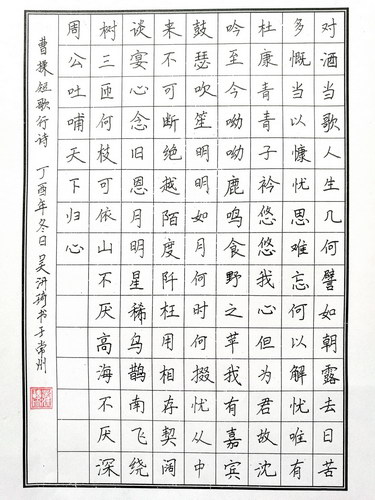 对酒当歌人生几何譬如朝露去日苦
多慨当以慷忧思难忘何以解忧唯有
杜康青青子衿悠悠我心但为君故沈
吟至今呦呦鹿鸣食野之苹我有嘉宾
鼓瑟吹笙明明如月何时何掇忧从中
来不可断绝越陌度阡枉用相存契阔
谈宴心念旧恩月明星稀乌鹊南飞绕
树三匝何枝可依山不厌高海不厌深
周公吐哺天下归心
曹操短歌行诗 丁酉年冬日吴琦书于常州